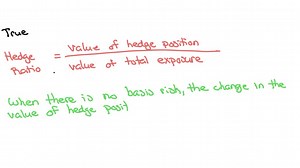 True
Hedge Ratio. = value of hedge position / value of total exposure
When there is no basis risk, the change in the
value of hedge posit